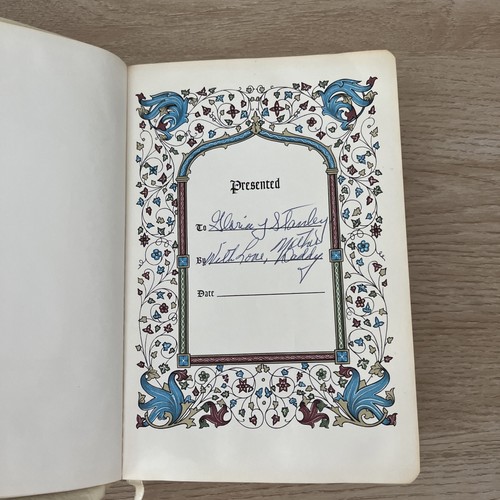 Presented
To Gloria & Stanley
By With Love, Mother
Daddy
Date